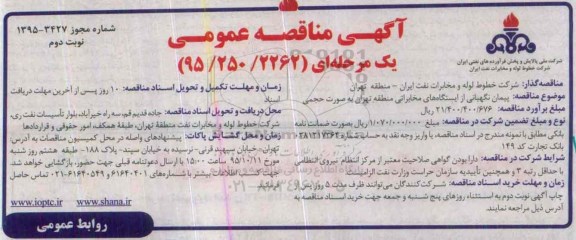 شماره مجوز ۳۴۲۷-۱۳۹۵
نوبت دوم
آگهی مناقصه عمومی
یک مرحله‌ای (۲۲۶۲/ ۲۵۰/ ۹۵)
شرکت ملی پالایش و پخش فرآورده های نفتی ایران
شرکت خطوط لوله و مخابرات نفت ایران
مناقصه‌گذار: شرکت خطوط لوله و مخابرات نفت ایران – منطقه تهران
موضوع مناقصه: پیمان نگهبانی از ایستگاه‌های مخابراتی منطقه تهران به صورت حجمی
مبلغ برآورد مناقصه: ۲۱/۴۰۰/۴۰۰/۶۷۶ ریال
نوع و مبلغ تضمین شرکت در مناقصه: مبلغ ۱/۰۷۰/۰۰۰/۰۰۰ ریال بصورت ضمانت نامه
بانکی مطابق با نمونه مندرج در اسناد مناقصه، یا واریز وجه نقد به حساب
بانک تجارت کد ۱۴۹
شرایط شرکت در مناقصه: دارا بودن گواهی صلاحیت معتبر از مرکز انتظام نیروی انتظامی
با حداقل رتبه ۳ و همچنین تأییدیه سازمان حراست وزارت نفت الزامیست.
زمان و مهلت خرید اسناد مناقصه: شرکت‌کنندگان می‌توانند ظرف مدت ۵ روز پس از
چاپ آگهی نوبت دوم به استثناء روزهای پنج شنبه و جمعه جهت خرید اسناد مناقصه به
آدرس ذیل مراجعه نمایند.
زمان و مهلت تکمیل و تحویل اسناد مناقصه: ۱۰ روز پس از آخرین مهلت دریافت
اسناد
محل دریافت و تحویل اسناد مناقصه: جاده قدیم قم، سه راه خیرآباد، بلوار تأسیسات نفت ری،
شرکت خطوط لوله و مخابرات نفت منطقه تهران، طبقه همکف، امور حقوقی و قراردادها
زمان و محل گشایش پاکات: پیشنهادهای واصله در محل کمیسیون مناقصات به آدرس:
تهران- خیابان سپهبد قرنی- نرسیده به خیابان سپند- پلاک ۱۸۸- طبقه هشتم روز شنبه
مورخ 95/10/11 ساعت ۱۵:۰۰ با ارسال دعوتنامه قبلی جهت حضور، بازگشایی خواهد شد.
جهت کسب اطلاعات بیشتر با شماره‌های ۶۱۶۴۰۴۰۱ و ۶۱۶۴۰۵۴۹-۰۲۱ تماس حاصل
فرمایید.
www.shana.ir
www.ioptc.ir
روابط عمومی